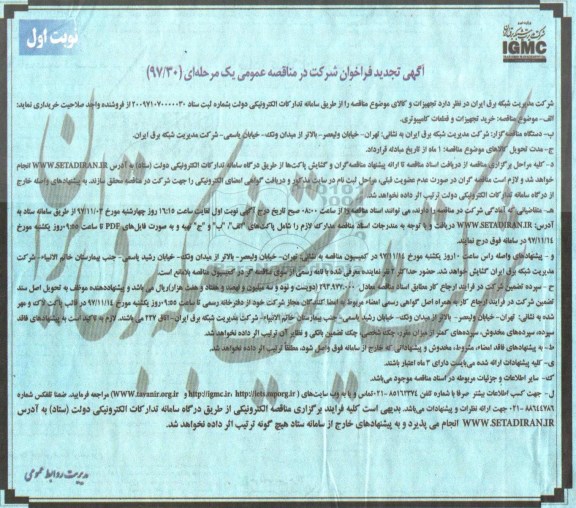 نوبت اول
IGMC
آگهی تجدید فراخوان شرکت در مناقصه عمومی یک مرحله‌ای (۹۷/۳۰)
شرکت مدیریت شبکه برق ایران در نظر دارد تجهیزات و کالای موضوع مناقصه را از طریق سامانه تدارکات الکترونیکی دولت بشماره ثبت ستاد ۲۰۰۹۷۱۰۷۰۰۰۰۰۳۰ از فروشنده واجد صلاحیت خریداری نماید:
الف- موضوع مناقصه: خرید تجهیزات و قطعات کامپیوتری.
ب- دستگاه مناقصه گزار: شرکت مدیریت شبکه برق ایران به نشانی: تهران- خیابان ولیعصر- بالاتر از میدان ونک- خیابان یاسمی- شرکت مدیریت شبکه برق ایران.
ج- مدت تحویل کالاهای موضوع مناقصه: ۱ ماه از تاریخ مبادله قرارداد.
د- کلیه مراحل برگزاری مناقصه از دریافت اسناد مناقصه تا ارائه پیشنهاد مناقصه گران و گشایش پاکت‌ها از طریق درگاه سامانه تدارکات الکترونیکی دولت (ستاد) به آدرس WWW.SETADIRAN.IR انجام
خواهد شد و لازم است مناقصه گران در صورت عدم عضویت قبلی، مراحل ثبت نام در سایت مذکور و دریافت گواهی امضای الکترونیکی را جهت شرکت در مناقصه محقق سازند. به پیشنهادهای واصله خارج
از درگاه سامانه تدارکات الکترونیکی دولت ترتیب اثر داده نخواهد شد.
هـ- متقاضیانی که آمادگی شرکت در مناقصه را دارند، می توانند اسناد مناقصه را از ساعت ۰۸:۰۰ صبح تاریخ درج آگهی نوبت اول لغایت ساعت ۱۶:۱۵ روز چهارشنبه مورخ ۹۷/۱۱/۰۳ از طریق سامانه ستاد به
آدرس: WWW.SETADIRAN.IR دریافت و با توجه به مندرجات اسناد مناقصه مدارک لازم را شامل پاکت‌های "الف"، "ب" و "ج" تهیه و به صورت فایل‌های PDF تا ساعت ۰۹:۵۵ روز یکشنبه مورخ
۹۷/۱۱/۱۴ در سامانه فوق درج نمایند.
و- پیشنهادهای واصله راس ساعت ۱۰ روز یکشنبه مورخ ۹۷/۱۱/۱۴ در کمیسیون مناقصه به نشانی: تهران- خیابان ولیعصر- بالاتر از میدان ونک- خیابان رشید یاسمی- جنب بیمارستان خاتم الانبیاء- شرکت
مدیریت شبکه برق ایران گشایش خواهد شد. حضور حداکثر ۲ نفر نماینده معرفی شده با نامه رسمی از سوی مناقصه گر در کمیسیون مناقصه بلامانع است.
ح- سپرده تضمین شرکت در فرایند ارجاع کار مطابق اسناد مناقصه معادل ۲۹۳.۹۷۲.۰۰۰ (دویست و نود و سه میلیون و نهصد و هفتاد و دو هزار) ریال می باشد و پیشنهاددهنده موظف به تحویل اصل سند
تضمین شرکت در فرایند ارجاع کار به همراه اصل گواهی رسمی امضاء مربوط به امضا کنندگان مجاز شرکت خود از دفترخانه رسمی تا ساعت ۰۹:۵۵ روز یکشنبه مورخ ۹۷/۱۱/۱۴ در قالب پاکت لاک و مهر
شده به نشانی: تهران- خیابان ولیعصر- بالاتر از میدان ونک- خیابان رشید یاسمی- جنب بیمارستان خاتم‌الانبیاء- شرکت مدیریت شبکه برق ایران- اتاق ۲۲۷ می باشند. لازم به تاکید است به پیشنهادهای فاقد
سپرده، سپرده‌های مخدوش، سپرده‌های کمتر از میزان مقرر، چک شخصی، چک تضمین بانکی و نظایر آن ترتیب اثر داده نخواهد شد.
ط- به پیشنهادهای فاقد امضاء، مشروط، مخدوش و پیشنهاداتی که خارج از سامانه فوق واصل شود، مطلقاً ترتیب اثر داده نخواهد شد.
ی- کلیه پیشنهادات ارائه شده می‌بایستی دارای ۳ ماه اعتبار باشند.
ک- سایر اطلاعات و جزئیات مربوطه در اسناد مناقصه موجود می‌باشد.
ل- جهت کسب اطلاعات بیشتر صرفا با شماره تلفن ۸۵۱۶۲۳۷۴-۰۲۱ تماس و یا به وب سایت‌های (http://iets.mporg.ir ،http://igmc.ir و www.tavanir.org.ir) مراجعه فرمایید. ضمنا تلفکس شماره
۸۸۶۴۴۷۸۶-۰۲۱ جهت ارائه نظرات و پیشنهادات می‌باشد. بدیهی است کلیه فرایند برگزاری مناقصه الکترونیکی از طریق درگاه سامانه تدارکات الکترونیکی دولت (ستاد) به آدرس
WWW.SETADIRAN.IR انجام می پذیرد و به پیشنهادهای خارج از سامانه ستاد هیچ گونه ترتیب اثر داده نخواهد شد.
مدیریت روابط عمومی